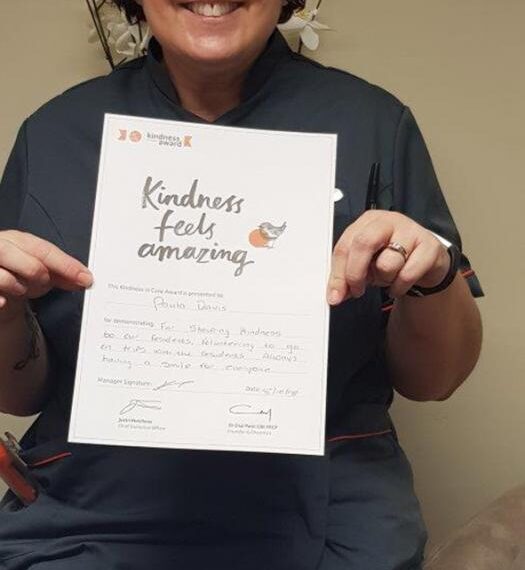 kindness
award
Kindness
feels
amazing
This Kindness in Care Award is presented to:
Paula Davis
for demonstrating: For Showing Kindness
to our residents, Volunteering to go
on trips with the residents. Always
having a smile for everyone
Manager Signature:
Date:
Chief Executive Officer
Founder & Chairman